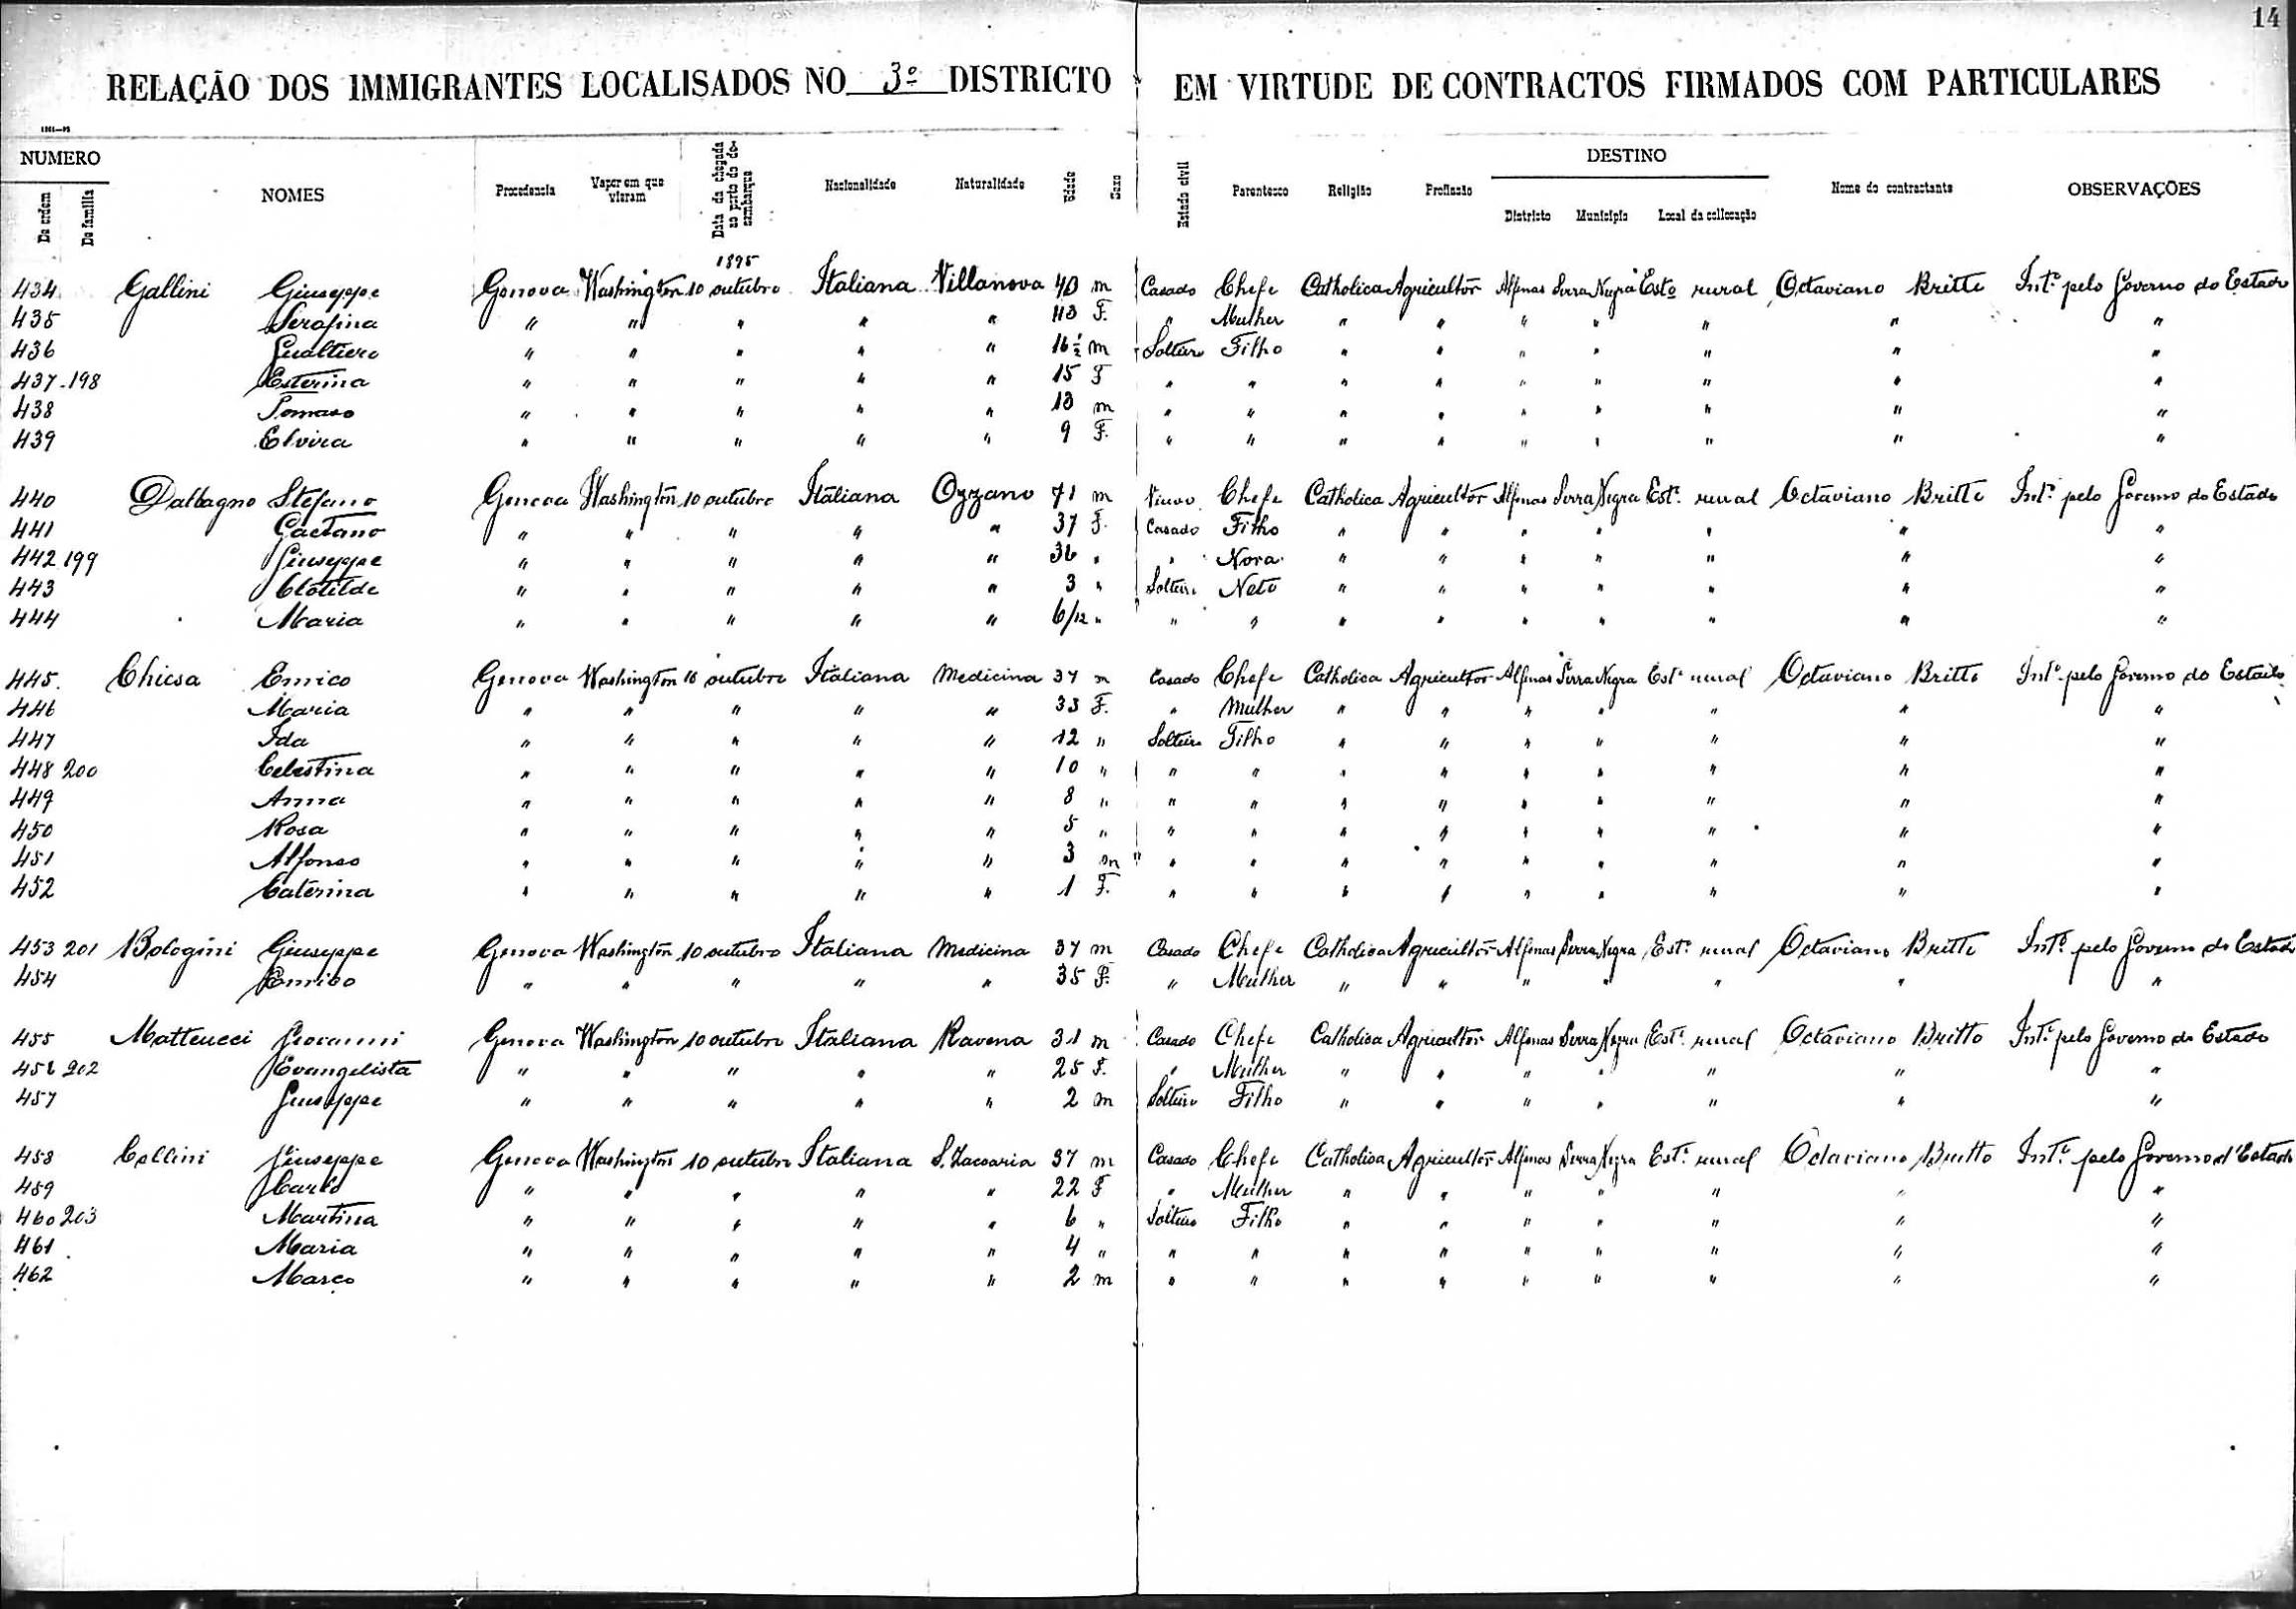 14
RELAÇÃO DOS IMMIGRANTES LOCALISADOS NO 3º DISTRICTO EM VIRTUDE DE CONTRACTOS FIRMADOS COM PARTICULARES
NUMERO
De ordem De familia NOMES Procedencia Vapor em que vieram Data da chegada ao porto do desembarque Nacionalidade Naturalidade Edade Sexo Estado civil Parentesco Religião Profissão DESTINO Districto Municipio Local da collocação Nome do contractante OBSERVAÇÕES
1895
434 Gallini Giuseppe Genova Washington 10 outubro Italiana Villanova 40 m Casado Chefe Catholica Agricultor Alfenas Serra Negra Estº rural Octaviano Britto Intº pelo Governo do Estado
435 Serafina " " " " " F. " Mulher " " " " " " "
436 Gualtiero " " " " " 16 ½ m Solteiro Filho " " " " " " "
437 198 Esterina " " " " " 15 F " " " " " " " " "
438 Tomaso " " " " " 13 m " " " " " " " " "
439 Elvira " " " " " 9 F. " " " " " " " " "
440 Dalbagno Stefano Genova Washington 10 outubro Italiana Ozzano 71 m Viuvo Chefe Catholica Agricultor Alfenas Serra Negra Estº rural Octaviano Britto Intº pelo Governo do Estado
441 Gaetano " " " " " 37 F. Casado Filho " " " " " " "
442 199 Giuseppe " " " " " 36 " " Nora " " " " " " "
443 Clotilde " " " " " 3 " Solteiro Neto " " " " " " "
444 Maria " " " " " 6/12 " " " " " " " " " "
445 Chiesa Enrico Genova Washington 10 outubro Italiana Medicina 37 m Casado Chefe Catholica Agricultor Alfenas Serra Negra Estº rural Octaviano Britto Intº pelo Governo do Estado
446 Maria " " " " " 33 F. " Mulher " " " " " " "
447 Ida " " " " " 12 " Solteiro Filho " " " " " " "
448 200 Celestina " " " " " 10 " " " " " " " " " "
449 Anna " " " " " 8 " " " " " " " " " "
450 Rosa " " " " " 5 " " " " " " " " " "
451 Alfonso " " " " " 3 m " " " " " " " " "
452 Caterina " " " " " 1 F. " " " " " " " " "
453 201 Bologini Giuseppe Genova Washington 10 outubro Italiana Medicina 37 m Casado Chefe Catholica Agricultor Alfenas Serra Negra Estº rural Octaviano Britto Intº pelo Governo do Estado
454 Enrico " " " " " 35 F. " Mulher " " " " " " "
455 Matteucci Giovanni Genova Washington 10 outubro Italiana Ravena 31 m Casado Chefe Catholica Agricultor Alfenas Serra Negra Estº rural Octaviano Britto Intº pelo Governo do Estado
456 202 Evangelista " " " " " 25 F. " Mulher " " " " " " "
457 Giuseppe " " " " " 2 m Solteiro Filho " " " " " " "
458 Cellini Giuseppe Genova Washington 10 outubro Italiana S. Zaccaria 37 m Casado Chefe Catholica Agricultor Alfenas Serra Negra Estº rural Octaviano Britto Intº pelo Governo d'Estado
459 Carlo " " " " " 22 F " Mulher " " " " " " "
460 203 Martina " " " " " 6 " Solteiro Filho " " " " " " "
461 Maria " " " " " 4 " " " " " " " " " "
462 Marco " " " " " 2 m " " " " " " " " "